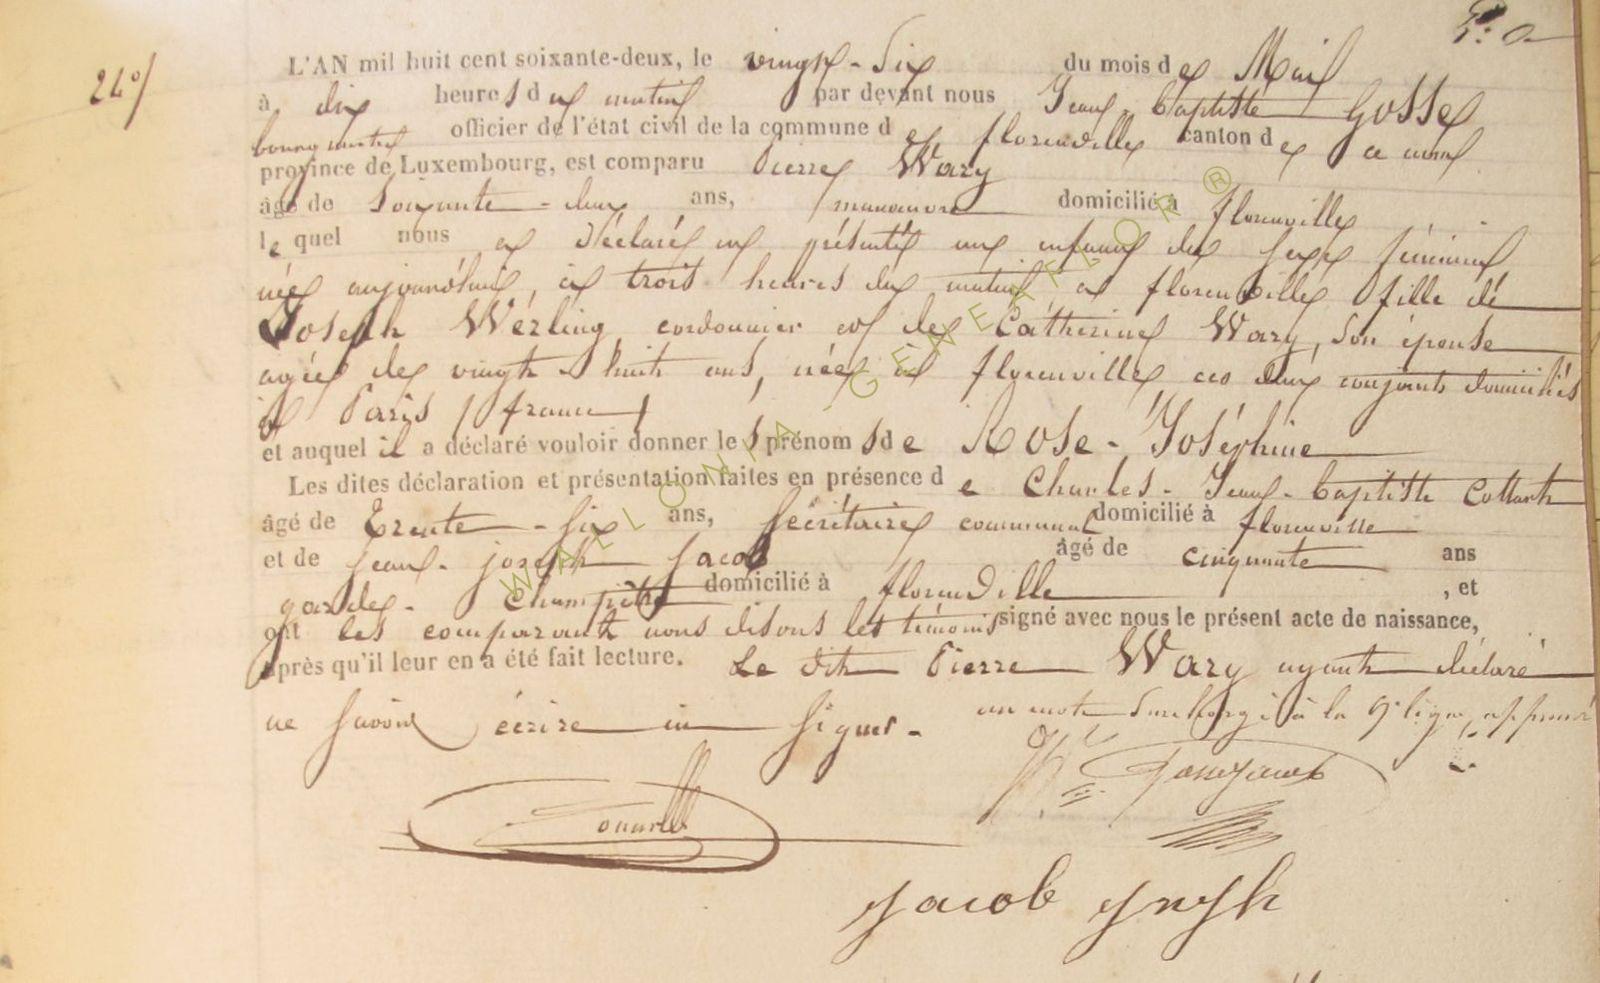 24°/
L'AN mil huit cent soixante-deux, le vingt-six du mois de Mai
à dix heures du matin par devant nous Jean-Baptiste Gosse
bourgmestre officier de l'état civil de la commune de florenville canton de ce nom
province de Luxembourg, est comparu Pierre Wary
âgé de Soixante-deux ans, manœuvre domicilié à florenville
lequel nous a déclaré et présenté un enfant du sexe féminin
née aujourd'hui, à trois heures du matin à florenville fille de
Joseph Werling, cordonnier et de Catherine Wary, son épouse
agée de vingt-huit ans, née à florenville, ces deux conjoints domiciliés
à Paris (france)
et auquel il a déclaré vouloir donner les prénoms de Rose-Joséphine
Les dites déclaration et présentation faites en présence de Charles-Jean-baptiste
âgé de trente-six ans, Secrétaire communal domicilié à florenville
et de jean-joseph jacob âgé de cinquante ans
garde-champêtre domicilié à florenville, et
ont les comparants nous disons les témoins signé avec nous le présent acte de naissance,
après qu'il leur en a été fait lecture. Le dit Pierre Wary ayant déclaré
ne savoir écrire ni signer. un mot surchargé à la 9e ligne, approuvé
jacob jnsph
WALLONIA-GENEAFLOR ®